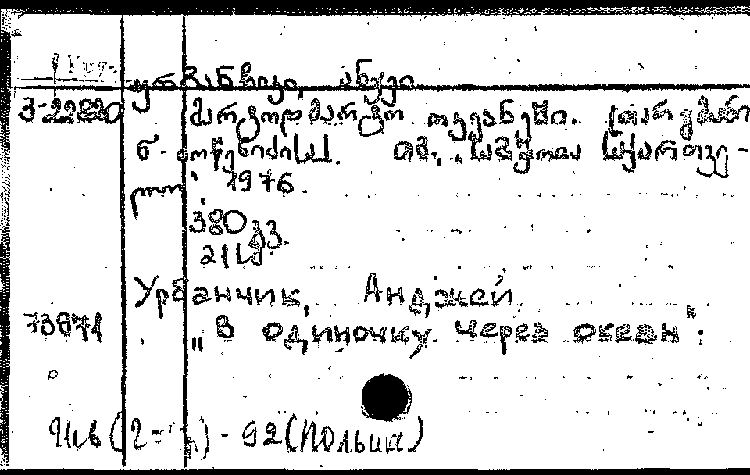 ურბანჩიკი, ანჯეი
3-22820 მარტოდმარტო ოკეანეში. თარგმანი
ნ. თბ., „საბჭოთა საქართვე-
ლო“. 1976.
380 გვ.
Урбанчик, Анджей
73671 „В одиночку через океан“:
92(Польша)